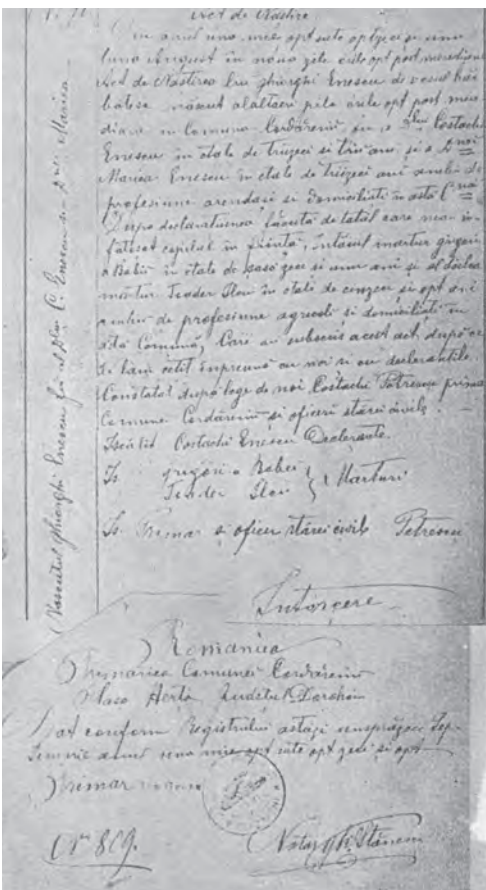 Act de Nastire
Din anul una mie opt sute optzeci și unu
luna August în noua zile oarele opt post meridiane
Act de Nasterea lui Ghiorghi Enescu de secsul băr-
batesc născut alaltaeri pela oarile opt post meri
diane in Comuna Cordăreniu, fiu a Dlui Costache
Enescu în etate de trizeci si trei ani, și a D-nei
Maricia Enescu in etate de trizeci ani ambii de
profesiune arendasi si domiciliati în astă C-nă
Dupa declaratiunea făcută de tatăl care neau în-
fatisat copilul în ființă, întăiul martur grigori
a Babii în etate de șase zeci si unu ani și al doilea
martur Teader Ilou în etate de cinzeci si opt ani
ambii de profesiune agricoli si domiciliati în
astă Comună, Care au subscris acest act după ce
li lam cetit împreună cu noi si cu declarantile.
Constatat dupa lege de noi Costachi Petrescu primar
Comunei Cordăreniu și oficeri stărei civile.
Iscălit Costachi Enescu Declarante.
Is. grigori a Babei
Teader Ilou } Marturi
Is. Primar și oficer stărei civile Petrescu
Intorcere
(Nascutul Ghiorghi Enescu fiu al Dlui C. Enescu și a Dnei Maricia
Romaniea
Primaria Comunei Cordăreniu
Plasa Herta Judetul Dorohoiu
Dat conform Registrului astăzi unsprăzeci Sep-
temvrie anul una mie opt sute opt zeci și opt
Primar
No 869.
Notar Gh. Stănescu